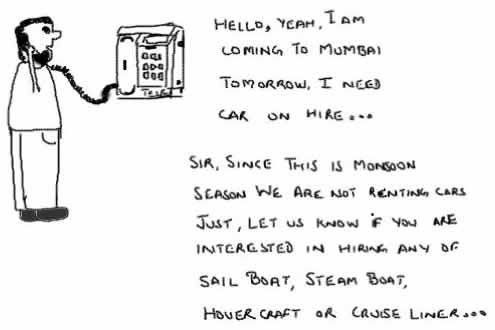 HELLO, YEAH, I AM
COMING TO MUMBAI
TOMORROW, I NEED
CAR ON HIRE...
TELE
SIR, SINCE THIS IS MONSOON
SEASON WE ARE NOT RENTING CARS
JUST, LET US KNOW IF YOU ARE
INTERESTED IN HIRING ANY OF
SAIL BOAT, STEAM BOAT,
HOVER CRAFT OR CRUISE LINER...